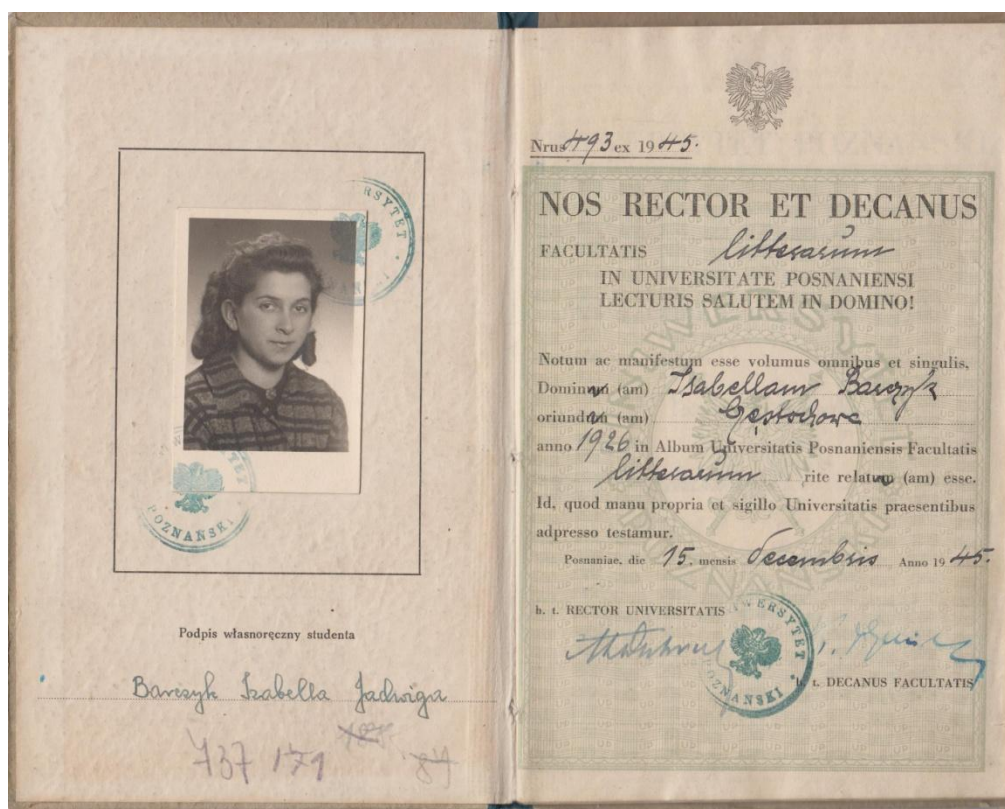 UNIWERSYTET
POZNAŃSKI
Podpis własnoręczny studenta
Barczyk Izabella Jadwiga
737 171
Nrus 493 ex 1945.
NOS RECTOR ET DECANUS
FACULTATIS litterarum
IN UNIVERSITATE POSNANIENSI
LECTURIS SALUTEM IN DOMINO!
Notum ac manifestum esse volumus omnibus et singulis,
Dominum (am) Isabellam Barczyk
oriundum (am) Częstochova
anno 1926 in Album Universitatis Posnaniensis Facultatis
litterarum rite relatum (am) esse.
Id, quod manu propria et sigillo Universitatis praesentibus
adpresso testamur.
Posnaniae, die 15. mensis Decembris Anno 1945.
h. t. RECTOR UNIVERSITATIS
UNIWERSYTET POZNAŃSKI
h. t. DECANUS FACULTATIS